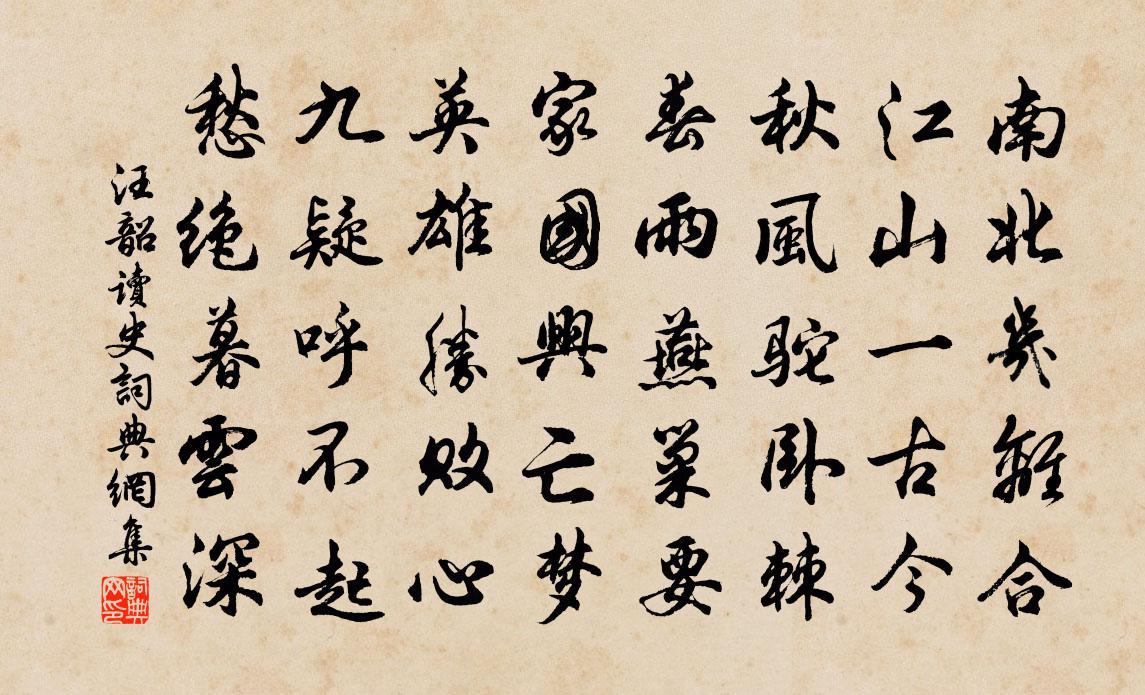 南北幾離合
江山一古今
秋風駝臥棘
春雨燕巢要
家國興亡梦
英雄勝敗心
九疑呼不起
愁絶暮雲深
汪韶讀史詞典網集
詞典網印